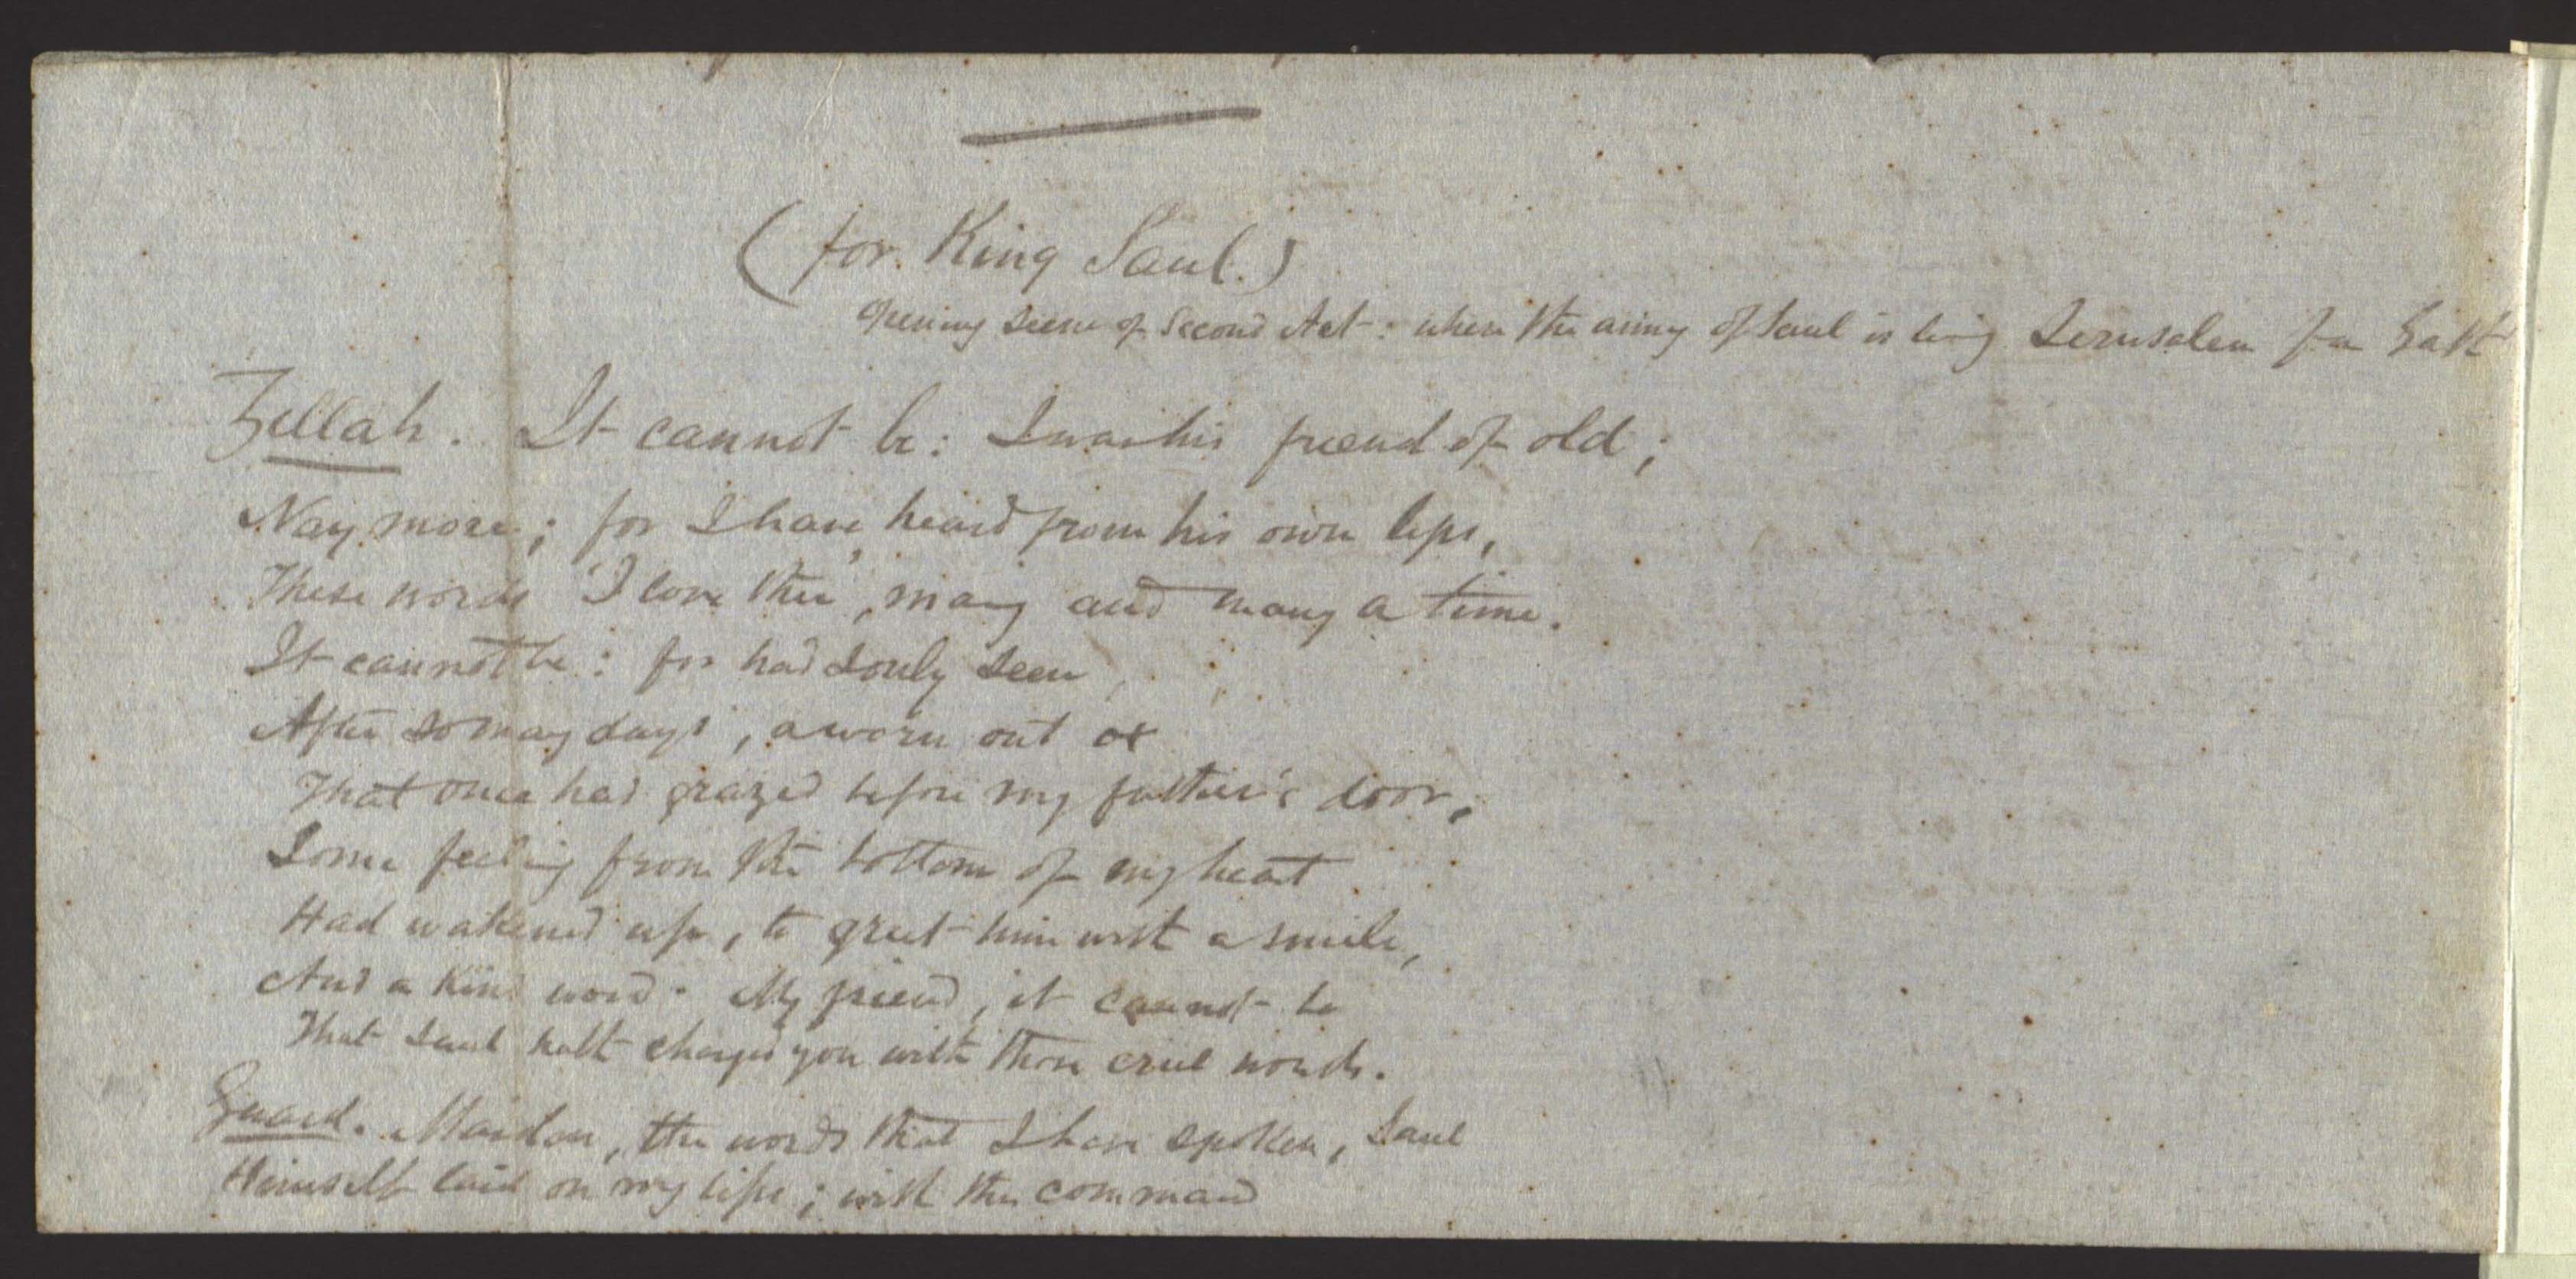 (for King Saul.)
Opening scene of Second Act: where the army of Saul is Jerusalem for Gath
Zillah. It cannot be: I was his friend of old;
Nay more; for I have heard from his own lips,
These words 'I love thee', many and many a time.
It cannot be: for had I only seen,
After so many days, a worn out ox
That once had grazed before my father's door,
Some feeling from the bottom of my heart
Had wakened up, to greet him with a smile,
And a kind word. My friend, it cannot be
That Saul hath charged you with those cruel words.
Guard. Maiden, the words that I have spoken, Saul
Himself laid on my lips; with the command